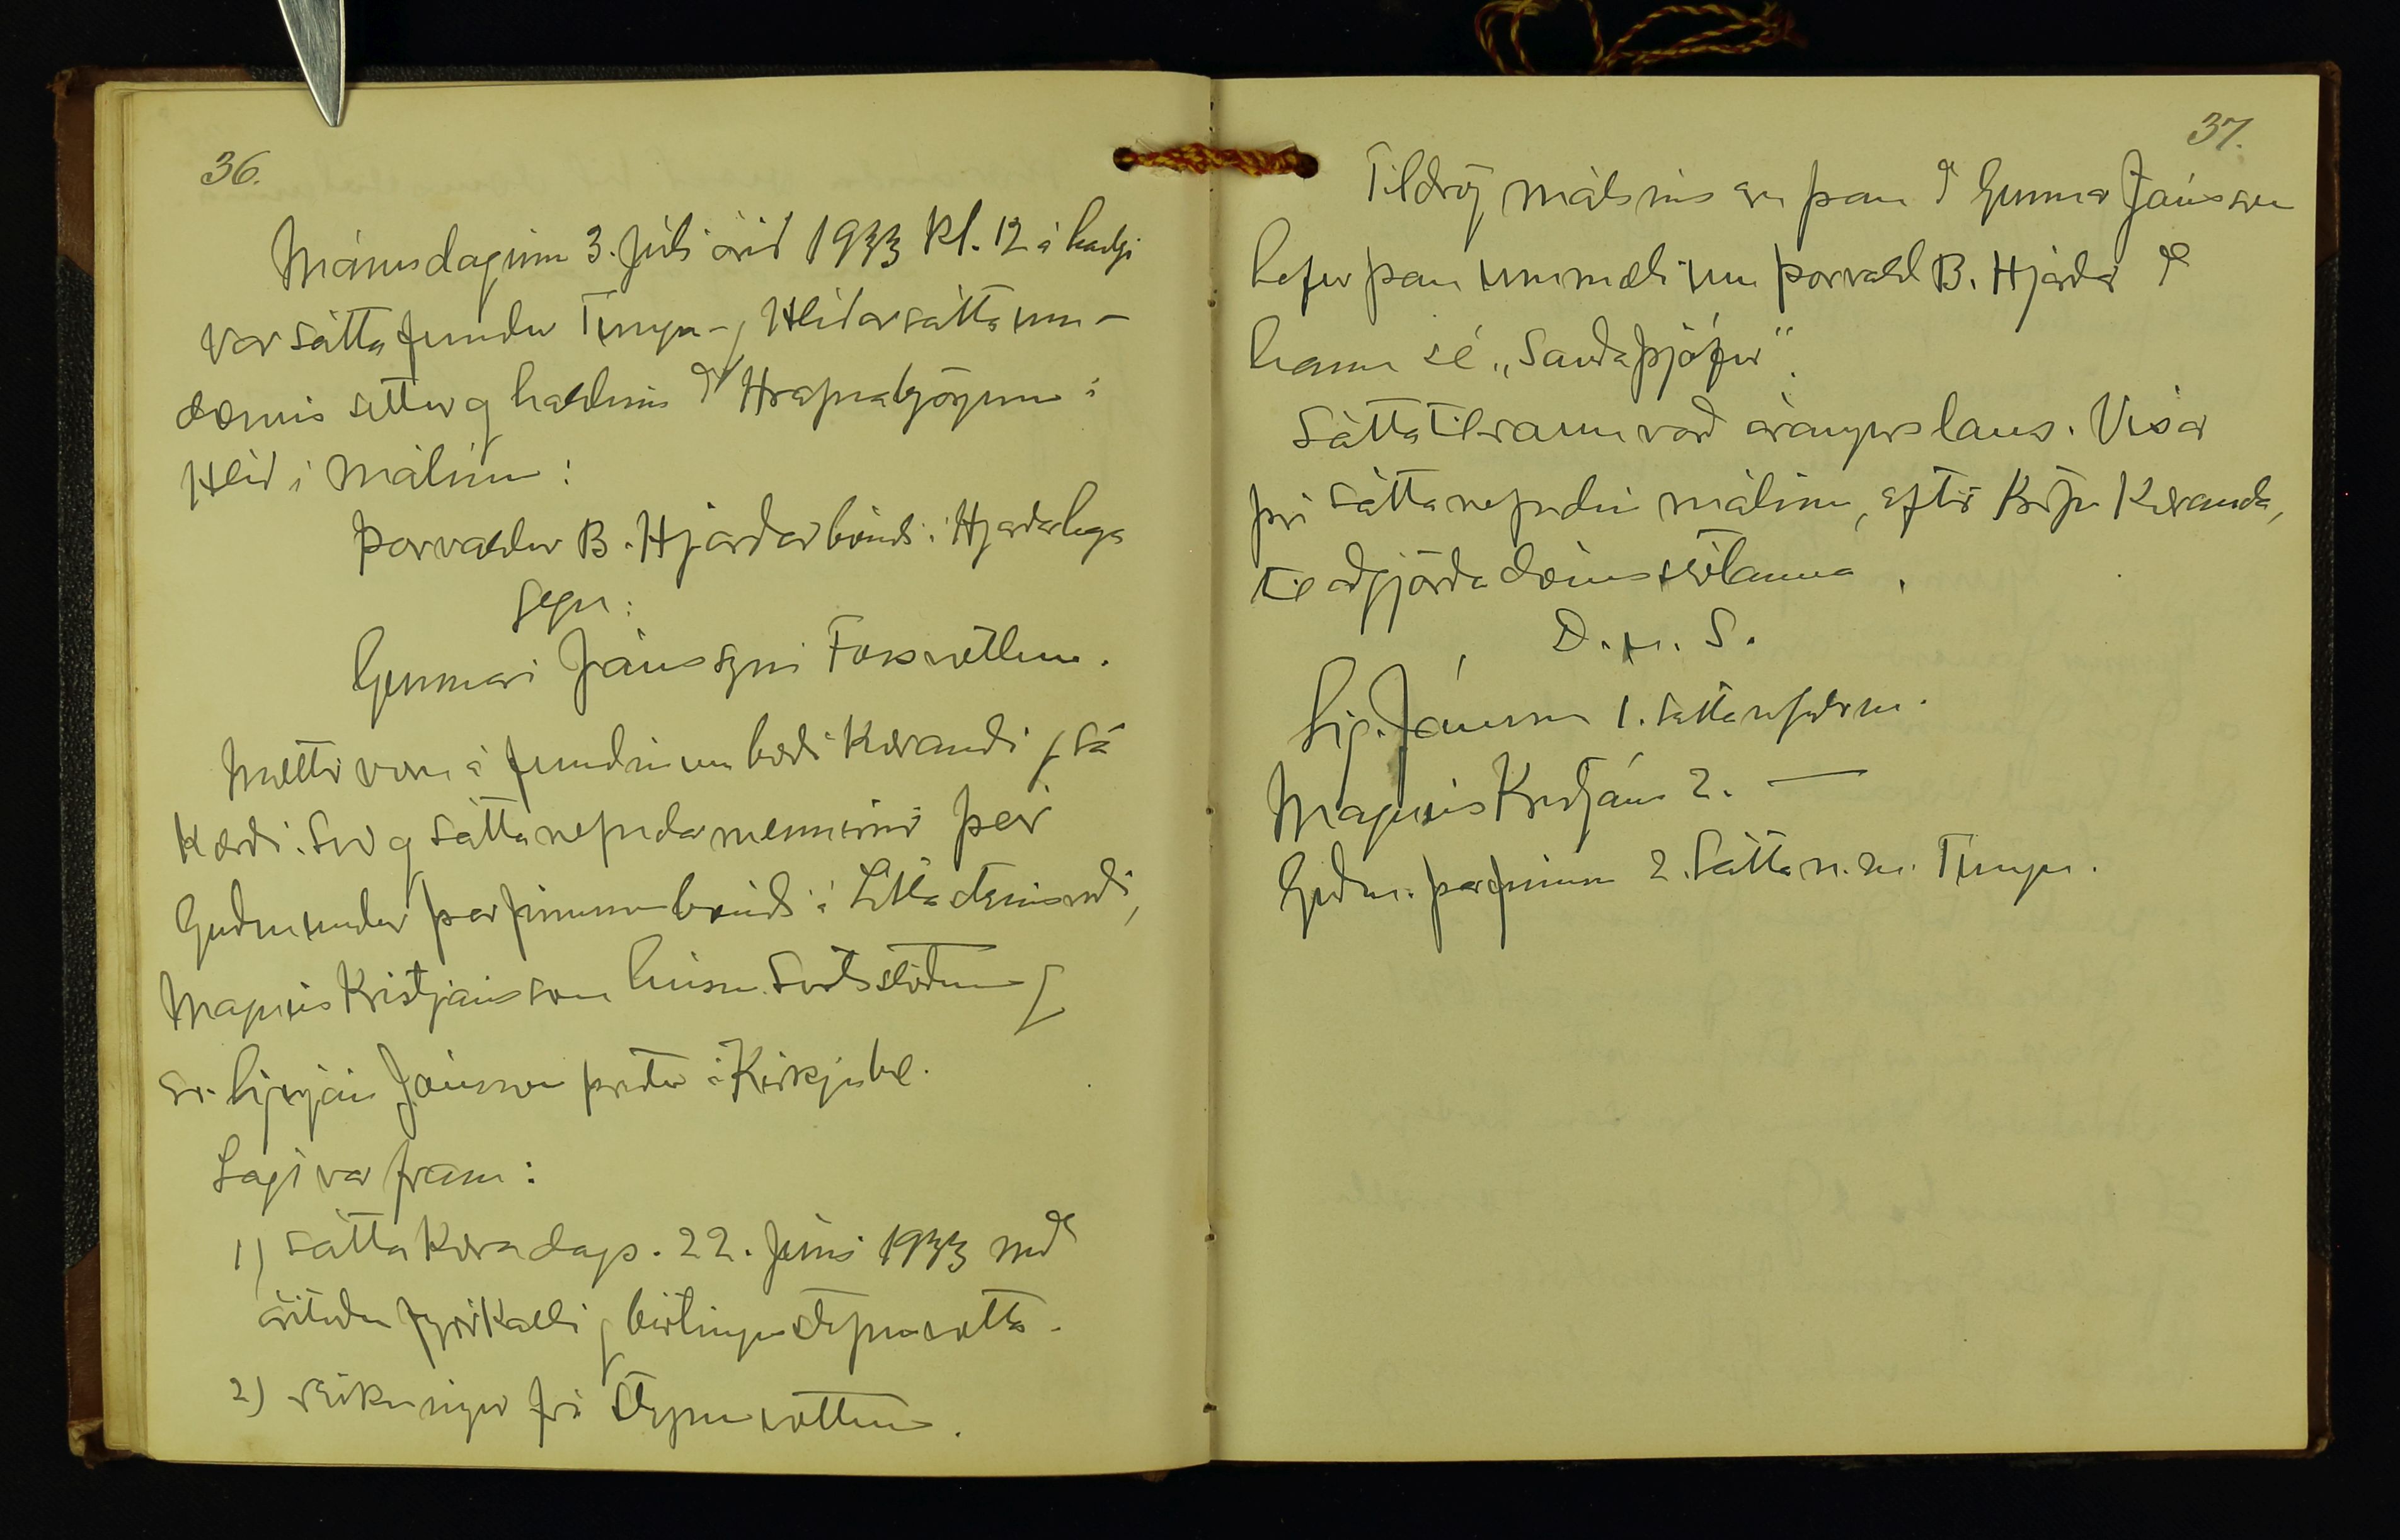 36.
Mánudaginn 3. júlí árið 1933 kl. 12 á hádgi
var sáttafundur Tungu- og Hlíðarsáttaum-
dæmis settur og haldinn að Hrafnabjörgum í
Hlíð í málinu:
Þorvaldur B. Hjarðar bóndi í Hjarðarhaga
gegn:
Gunnari Jónssyni Fossvöllum.
Mættir voru á fundinum bæði kærandi og sá
kærði. Svo og sáttanefndarmennirnir þeir
Guðmundur Þorfinnsson bóndi í Litla Steinsvaði,
Magnús Kristjánsson húsm. Surtsstöðum og
sr. Sigurjón Jónsson prestur í Kirkjubæ.
Lagt var fram:
1) Sáttakæra dags. 22. júní 1933 með
árituðu fyrirkalli og birtingu stefnuvotta.
2) reikningur frá stefnuvottum.
37.
Tildrög málsins eru þau að Gunnar Jónsson
hefur þau ummæli um Þorvald B. Hjarðar að
hann sé „Sauðaþjófur“.
Sáttatilraun varð árangurslaus. Vísar
því sáttanefndin málinu, eftir kröfu kæranda,
til aðgjörða dómstólanna.
D. u. S.
Sig. Jónsson 1. sáttanefndarm.
Magnús Kristjáns 2. —
Guðm. Þorfinnsson 2. Sátta n. m. Tungu.